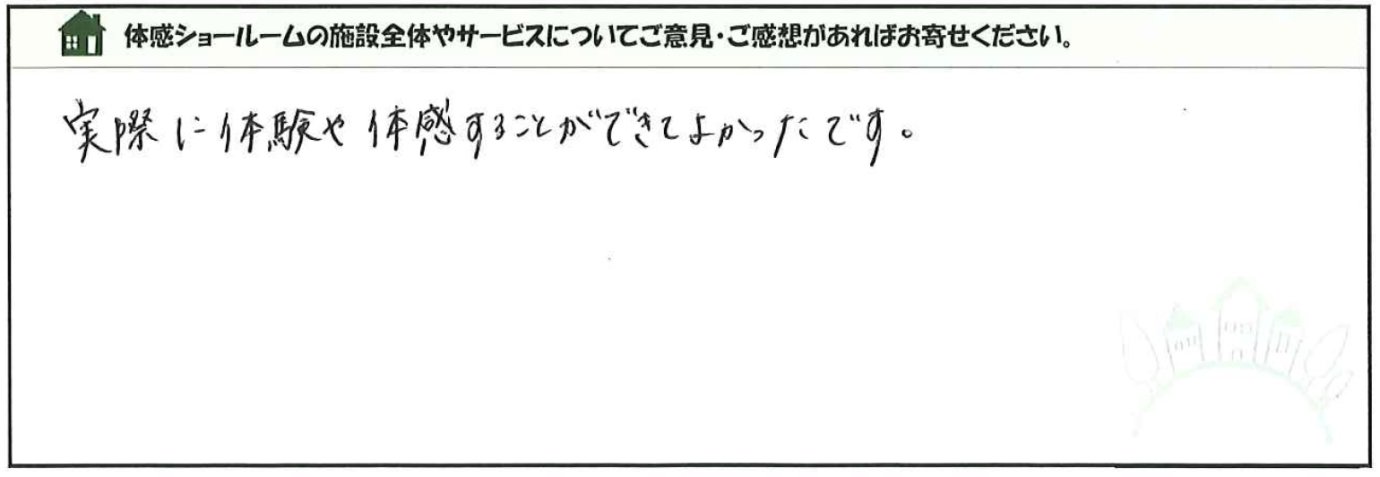 体感ショールームの施設全体やサービスについてご意見・ご感想があればお寄せください。
実際に体験や体感することができてよかったです。